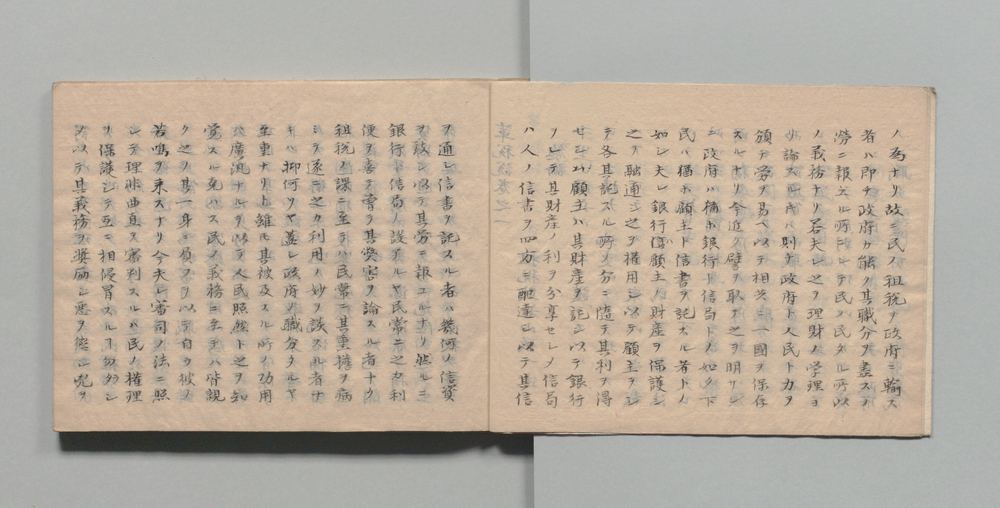 ノ為ナリ故ニ民ノ租税ヲ政府ニ輸ス
者ハ即チ政府カ能ク其職分ヲ盡スノ
勞ニ報スル所ニシテ民ノ民タル所以
ノ義務ナリ若夫レ之ヲ理財ノ学理ヨ
リ論スル片ハ則チ政府ト人民ト力ヲ
頒チ労ヲ易ヘ以テ相共ニ一國ヲ保存
スルナリ今近ク譬ヲ取テ之ヲ明サン
ニ政府ハ猶ホ銀行ト信局トノ如ク下
民ハ猶ホ顧主ト信書ヲ託スル者トノ
如シ夫レ銀行ハ顧主ノ財産ヲ保護シ
之ヲ融通シ之ヲ権用シ以テ顧主ヲシ
テ各其託スル所ノ分ニ随テ其利ヲ得
セシム顧主ハ其財産ヲ託シ以テ銀行
ヲシテ其財産ノ利ヲ分享セシメ信局
ハ人ノ信書ヲ四方ニ配達シ以テ其信
ヲ通シ信書ヲ託スル者ハ幾何ノ信資
ヲ以テ其労ニ報エルナリ然ルニ
銀行ト信局ノ設アルヤ民常ニ之カ利
便ヲ喜テ曽ヲ其受害ヲ論スル者ナク
租税ノ課ニ至テハ民常ニ其重擔ヲ病
ミテ遂ニ之カ利用ノ妙ヲ談スル者ナ
キハ抑何ソヤ蓋シ政府ノ職分タルヤ
至重ナリト雖モ其被及スル所ノ功用
ハ廣汎ナルヲ以テ人民照然ト之ヲ知
覚スル克ハス民ノ義務ニ至テハ皆親
ク之ヲ其一身ニ負フヲ以テ自カ
苦鳴ヲ来スナリ今夫レ審司ノ法ニ照
シテ理非曲直ヲ審判スルハ民ノ権理
ヲ保護シテ互ニ相侵冒スルヿ勿ラシ
メ以テ其義務ヲ奨励シ悪ヲ懲シ兇ヲ